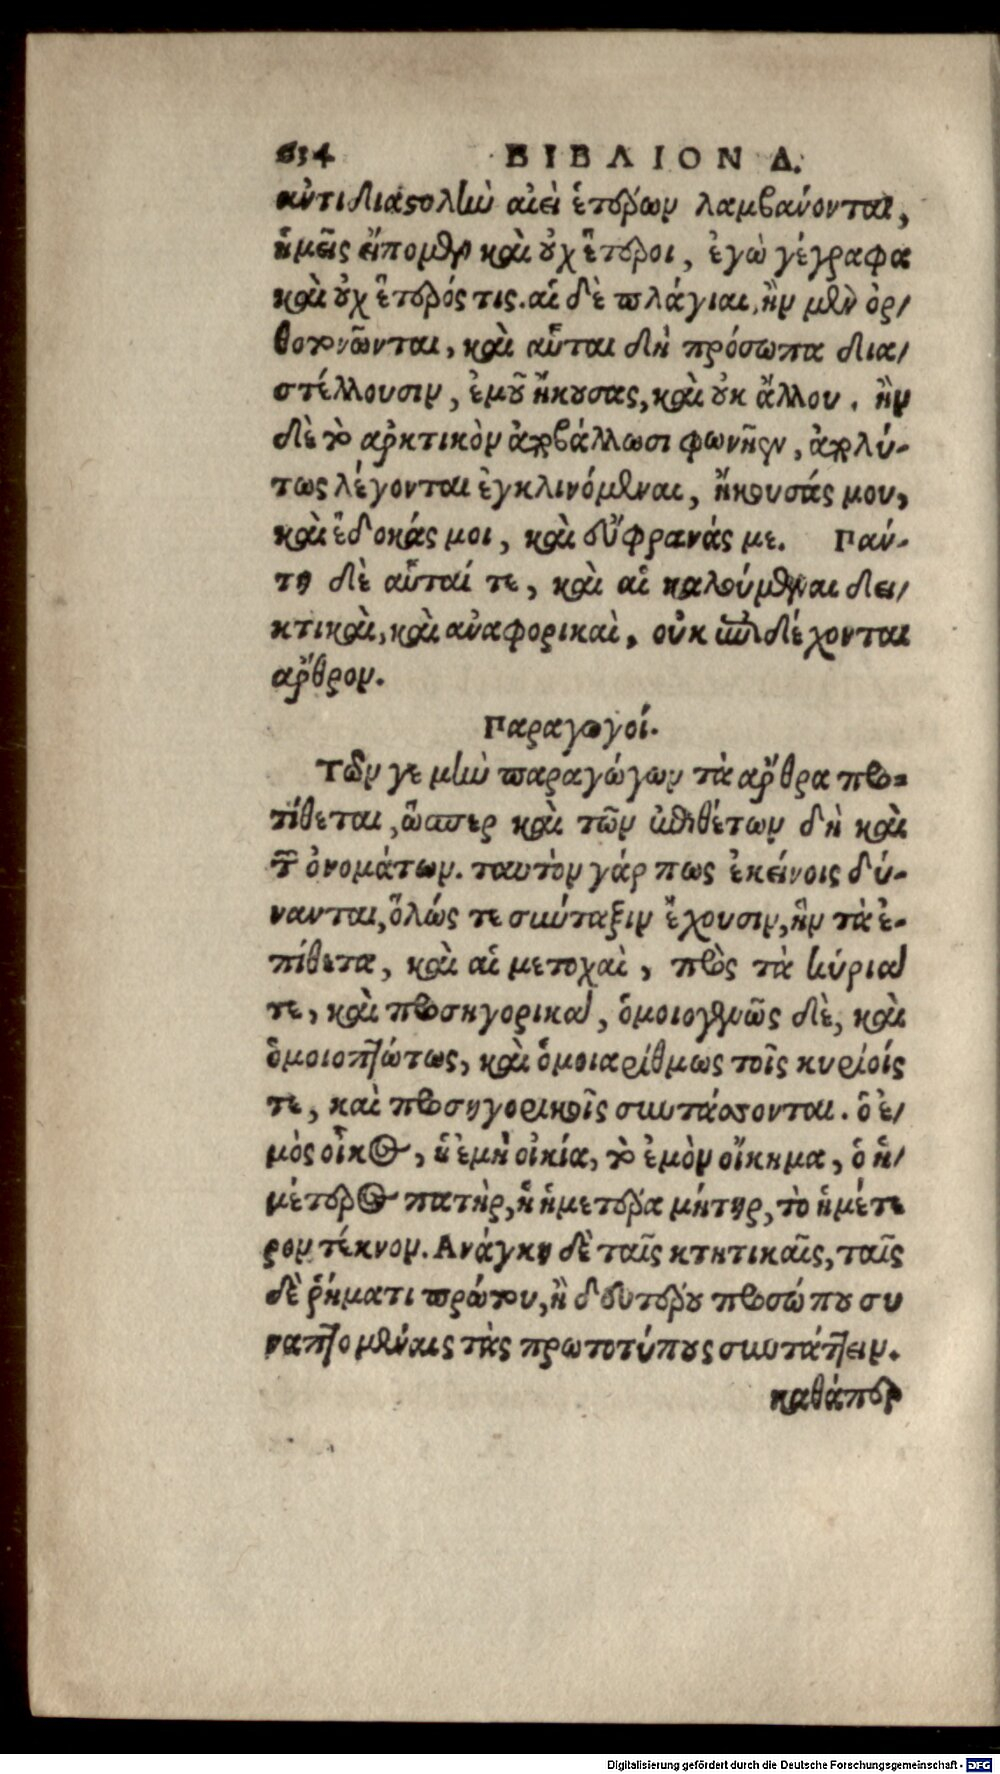 634 ΒΙΒΛΙΟΝ Δ.
ἀντιδιαστολὴν αἰεὶ ἑτέρων λαμβάνονται,
ἡμεῖς εἴπομεν καὶ οὐχ ἕτεροι, ἐγὼ γέγραφα
καὶ οὐχ ἕτερός τις. αἱ δὲ πλάγιαι, ἢν μὲν ὀρ/
θοτονῶνται, καὶ αὗται δὴ πρόσωπα δια/
στέλλουσιν, ἐμοῦ ἤκουσας, καὶ οὐκ ἄλλου. ἢν
δὲ τὸ ἀρκτικὸν ἀποβάλλωσι φωνῆεν, ἀπολύ-
τως λέγονται ἐγκλινόμεναι, ἤκουσάς μου,
καὶ ἔδοκάς μοι, καὶ εὔφρανάς με. Πάν-
τη δὲ αὗταί τε, καὶ αἱ καλούμεναι δει/
κτικαὶ, καὶ ἀναφορικαὶ, οὐκ ἐπιδέχονται
ἄρθρον.
Παραγωγοί.
Τῶν γε μὴν παραγώγων τὰ ἄρθρα προ-
τίθεται, ὥσπερ καὶ τῶν ἐπιθέτων δὴ καὶ
τῶν ὀνομάτων. ταυτὸν γάρ πως ἐκείνοις δύ-
νανται, ὅλώς τε σύνταξιν ἔχουσιν, ἣν τὰ ἐ-
πίθετα, καὶ αἱ μετοχαὶ, πρὸς τὰ κύρια
τε, καὶ προσηγορικὰ, ὁμοιογενῶς δὲ, καὶ
ὁμοιοπτώτως, καὶ ὁμοιαρίθμως τοῖς κυρίοίς
τε, καὶ προσηγορικοῖς συντάσσονται. ὁ ἐ/
μὸς οἶκος, ἡ ἐμὴ οἰκία, τὸ ἐμὸν οἴκημα, ὁ ἡ/
μέτερος πατὴρ, ἡ ἡμετέρα μήτηρ, τὸ ἡμέτε
ρον τέκνον. Ανάγκη δὲ ταῖς κτητικαῖς, ταῖς
δὲ ῥήματι πρώτου, ἢ δευτέρου προσώπου συ
ναπτομέναις τὰς πρωτοτύπους συντάττειν.
καθάπερ
Digitalisierung gefördert durch die Deutsche Forschungsgemeinschaft - DFG